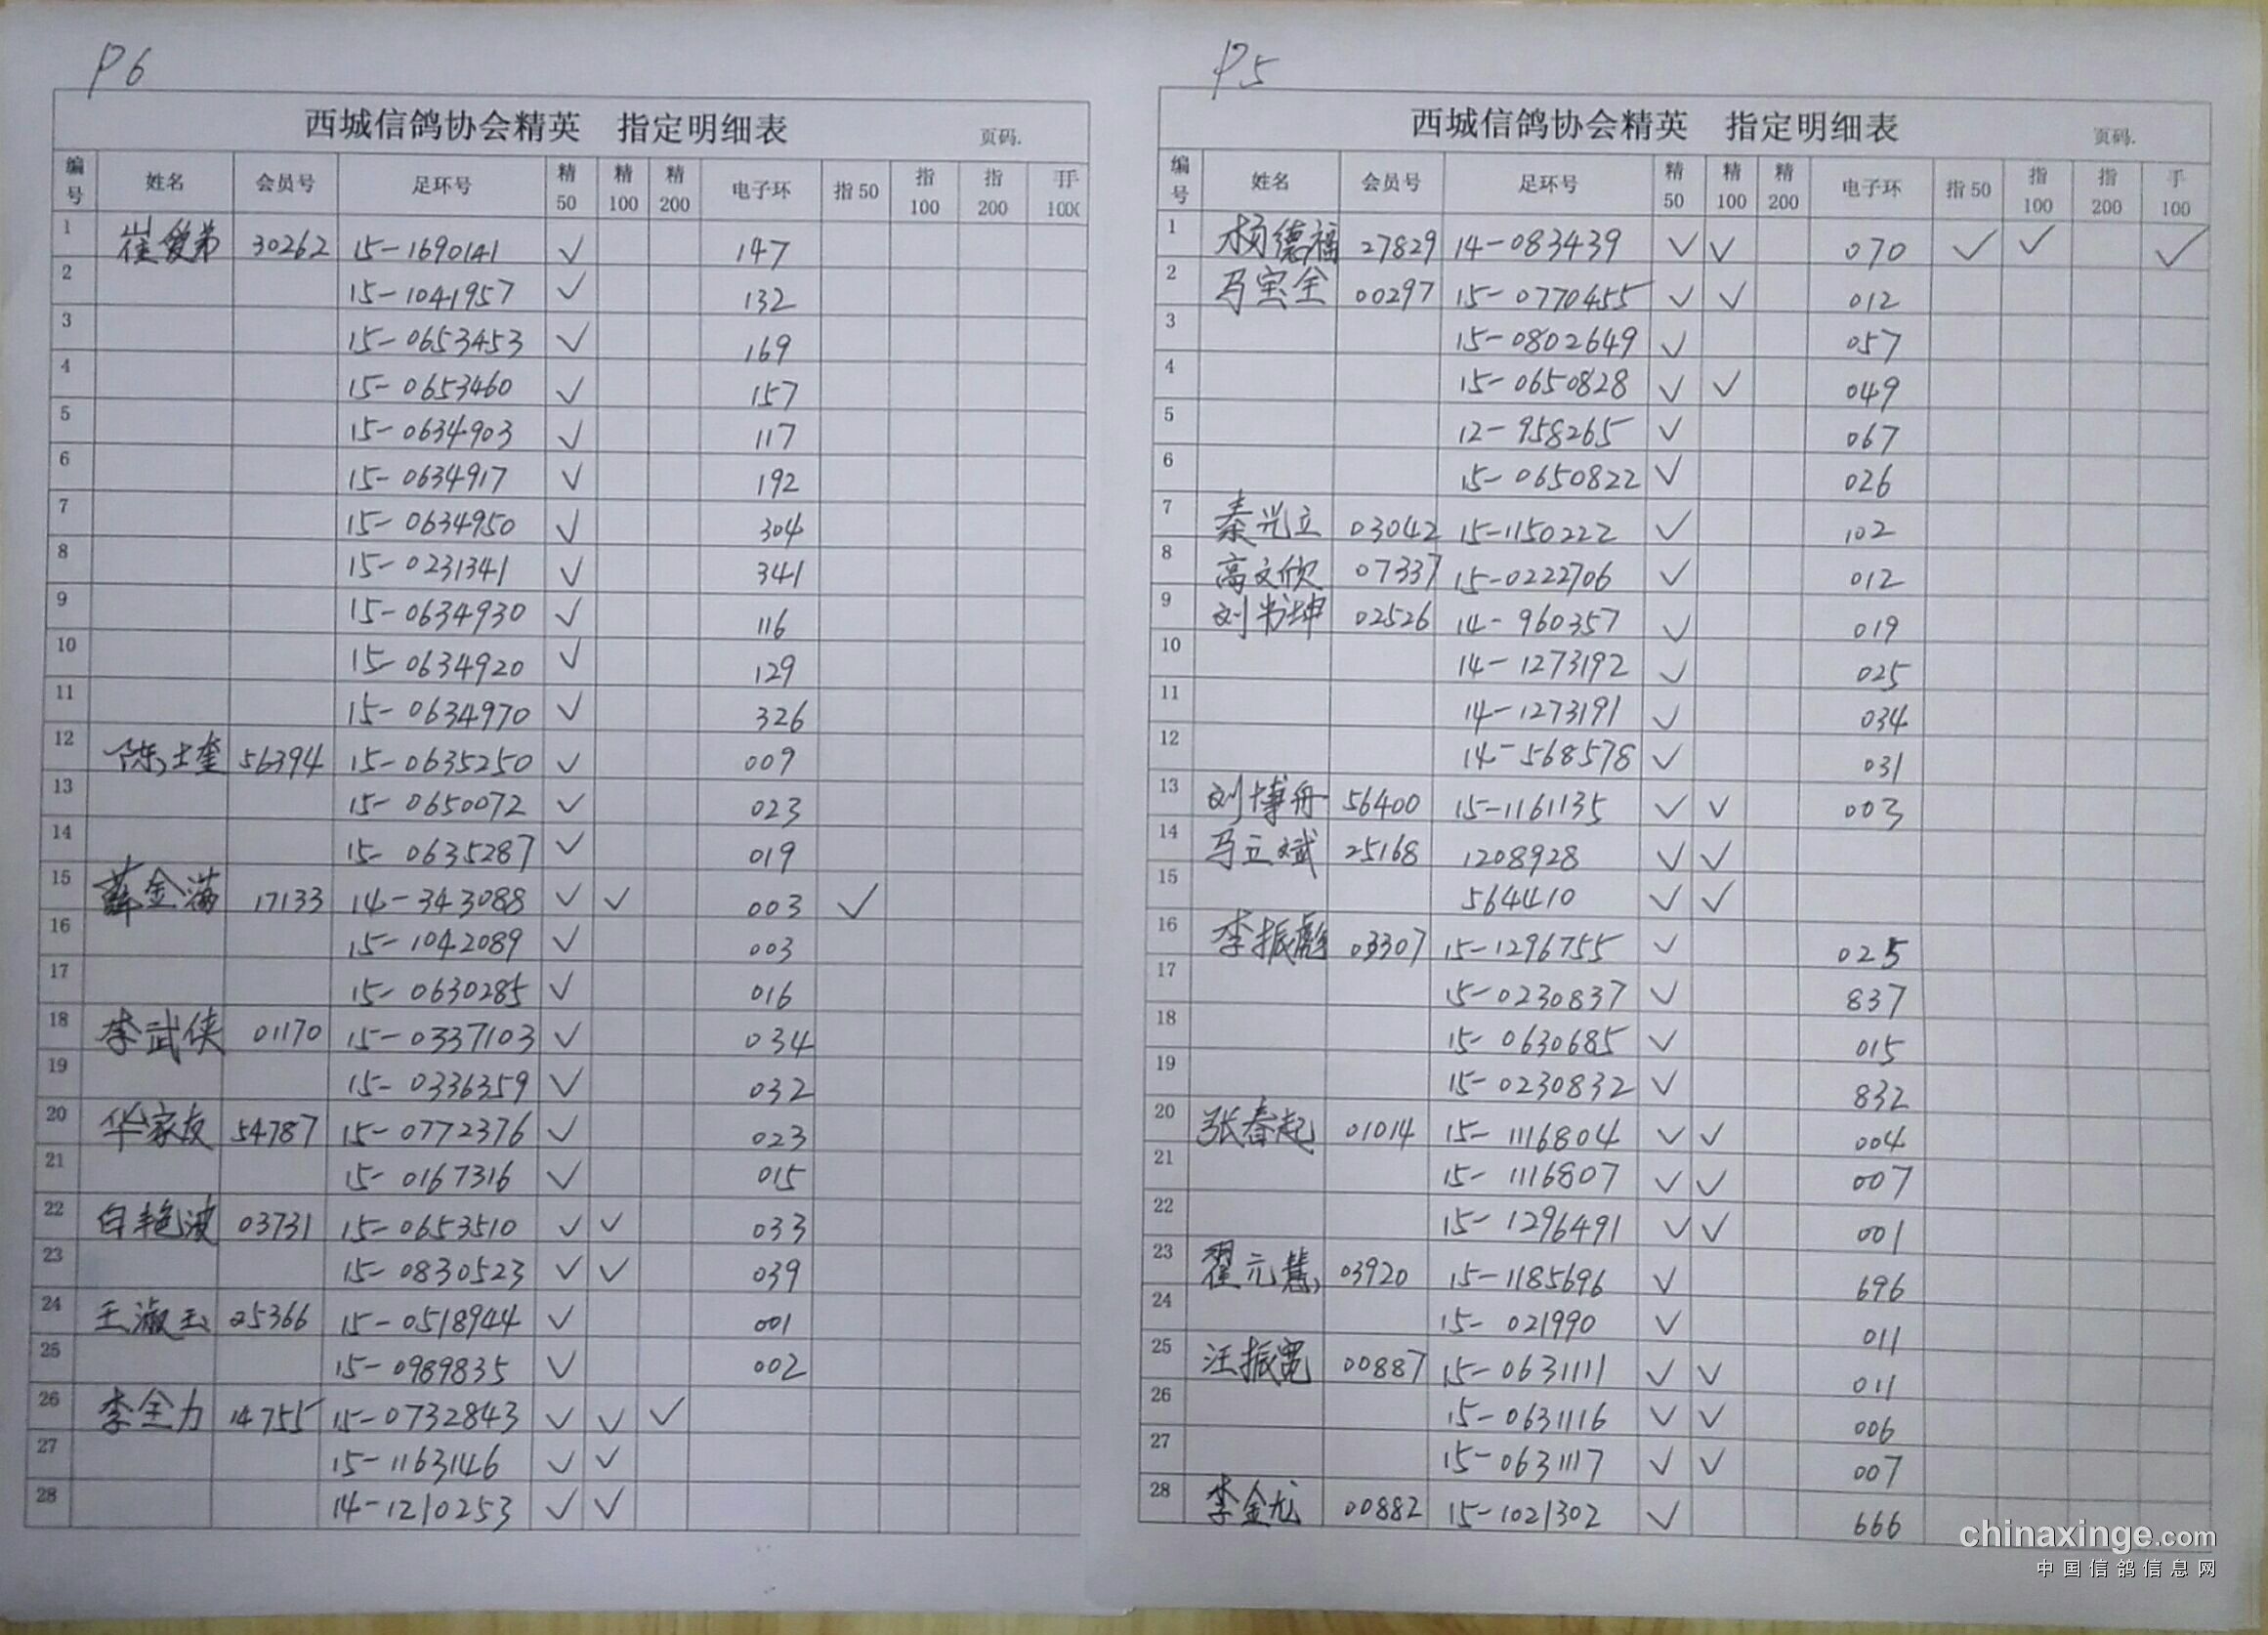 P6
西城信鸽协会精英 指定明细表
页码.
编号 姓名 会员号 足环号 精50 精100 精200 电子环 指50 指100 指200
1 崔爱弟 30262 15-1690141 ✓ 147
2 15-1041957 ✓ 132
3 15-0653453 ✓ 169
4 15-0653460 ✓ 157
5 15-0634903 ✓ 117
6 15-0634917 ✓ 192
7 15-0634950 ✓ 304
8 15-0231341 ✓ 341
9 15-0634930 ✓ 116
10 15-0634920 ✓ 129
11 15-0634970 ✓ 326
12 陈士奎 56394 15-0635250 ✓ 009
13 15-0650072 ✓ 023
14 15-0635287 ✓ 019
15 薛金满 17133 14-343088 ✓ ✓ 003 ✓
16 15-1042089 ✓ 003
17 15-0630285 ✓ 016
18 李武侠 01170 15-0337103 ✓ 034
19 15-0336359 ✓ 032
20 华家友 54787 15-0772376 ✓ 023
21 15-0167316 ✓ 015
22 白艳波 03731 15-0653510 ✓ ✓ 033
23 15-0830523 ✓ ✓ 039
24 王淑玉 25366 15-0518944 ✓ 001
25 15-0989835 ✓ 002
26 李全力 14755 15-0732843 ✓ ✓ ✓
27 15-1163146 ✓ ✓
28 14-1210253 ✓ ✓
P5
西城信鸽协会精英 指定明细表
页码.
编号 姓名 会员号 足环号 精50 精100 精200 电子环 指50 指100 指200 手100
1 杨德福 27829 14-083439 ✓ ✓ 070 ✓ ✓ ✓
2 马宝全 00297 15-0770455 ✓ ✓ 012
3 15-0802649 ✓ 057
4 15-0650828 ✓ ✓ 049
5 12-958265 ✓ 067
6 15-0650822 ✓ 026
7 秦光立 03042 15-1150222 ✓ 102
8 高文欣 07337 15-0222706 ✓ 012
9 刘书坤 02526 14-960357 ✓ 019
10 14-1273192 ✓ 025
11 14-1273191 ✓ 034
12 14-568578 ✓ 031
13 刘博舟 56400 15-1161135 ✓ ✓ 003
14 马立斌 25168 1208928 ✓ ✓
15 564410 ✓ ✓
16 李振彪 03307 15-1296755 ✓ 025
17 15-0230837 ✓ 837
18 15-0630685 ✓ 015
19 15-0230832 ✓ 832
20 张春起 01014 15-1116804 ✓ ✓ 004
21 15-1116807 ✓ ✓ 007
22 15-1296491 ✓ ✓ 001
23 翟元慧 03920 15-1185696 ✓ 696
24 15-021990 ✓ 011
25 汪振宽 00887 15-0631111 ✓ ✓ 011
26 15-0631116 ✓ ✓ 006
27 15-0631117 ✓ ✓ 007
28 李金龙 00882 15-1021302 ✓ 666
chinaxinge.com
中国信鸽信息网